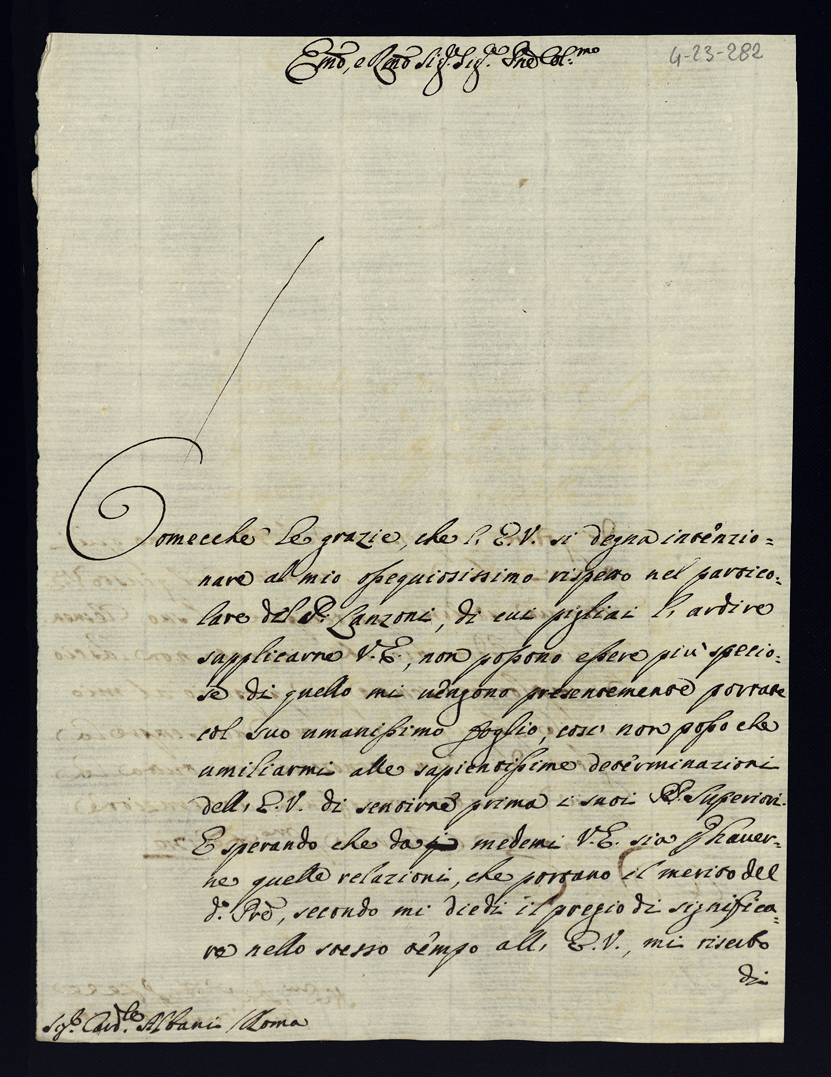 Emõ, e Rmõ Sig.r Sig.r Prõ Col.mo
4-23-282
Comecche le grazie, che l' E.V. si degna intenzio=
nare al mio ossequiosissimo rispetto nel partico=
lare del P. Lanzoni, di cui pigliai l' ardire
supplicarne V.E., non possono essere più specio=
se di quello mi vengono presentemente portate
col suo umanissimo foglio, così non posso che
umiliarmi alle sapientissime determinazioni
dell' E.V. di sentirne prima i suoi PP. Superiori.
E sperando che da medemi V.E. sia p haver=
ne quelle relazioni, che portano il merito del
d.o Prẽ, secondo mi diedi il pregio di significa=
re nello stesso tempo all' E.V., mi riserbo
di
Sig.r Card.le Albani Roma